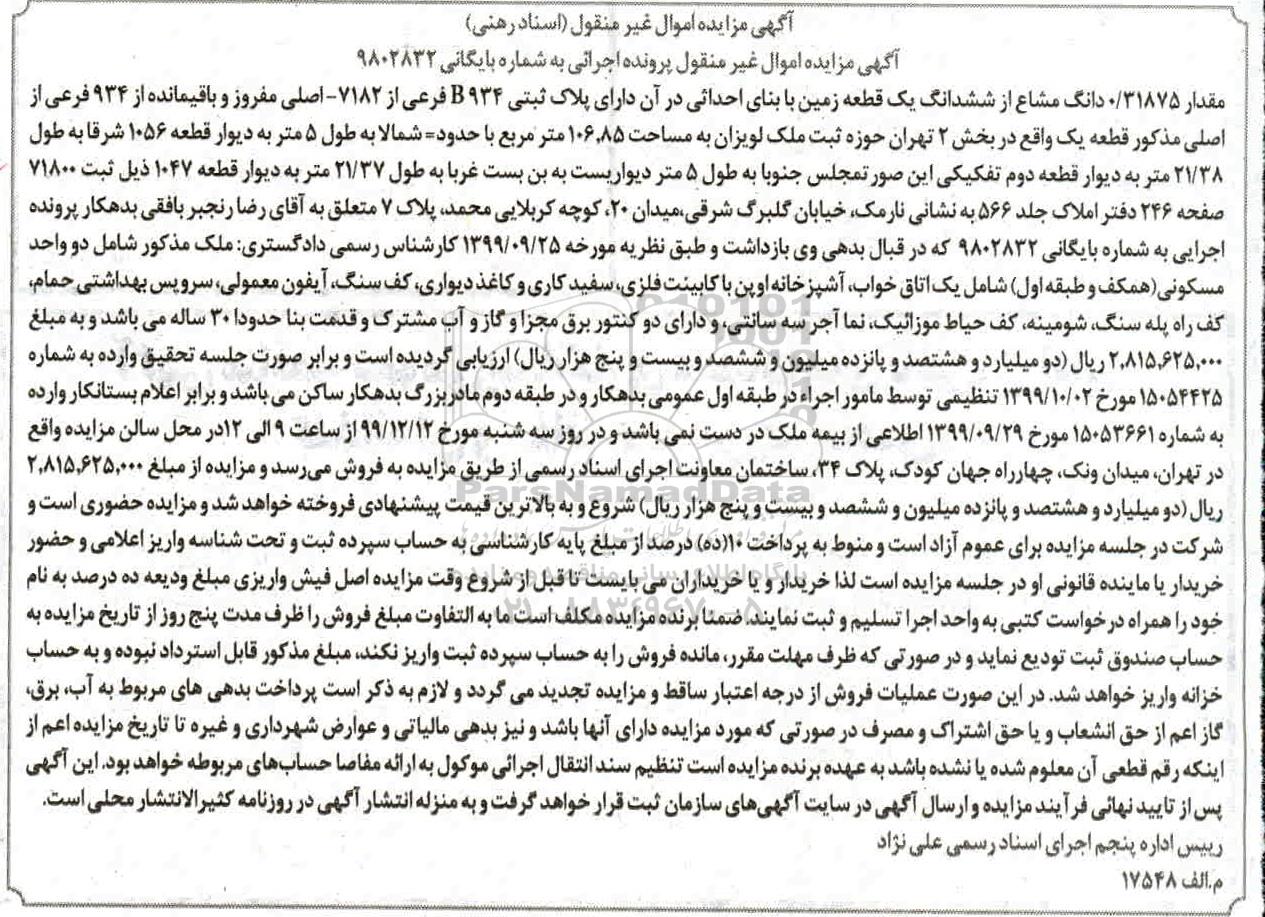 آگهی مزایده اموال غیر منقول (اسناد رهنی)
آگهی مزایده اموال غیر منقول پرونده اجرائی به شماره بایگانی ۹۸۰۲۸۳۲
مقدار ۰/۳۱۸۷۵ دانگ مشاع از ششدانگ یک قطعه زمین با بنای احداثی در آن دارای پلاک ثبتی B ۹۳۴ فرعی از ۷۱۸۲- اصلی مفروز و باقیمانده از ۹۳۴ فرعی از
اصلی مذکور قطعه یک واقع در بخش ۲ تهران حوزه ثبت ملک لویزان به مساحت ۱۰۶,۸۵ متر مربع با حدود= شمالا به طول ۵ متر به دیوار قطعه ۱۰۵۶ شرقا به طول
۲۱/۳۸ متر به دیوار قطعه دوم تفکیکی این صورتمجلس جنوبا به طول ۵ متر دیواریست به بن بست غربا به طول ۲۱/۳۷ متر به دیوار قطعه ۱۰۴۷ ذیل ثبت ۷۱۸۰۰
صفحه ۲۴۶ دفتر املاک جلد ۵۶۶ به نشانی نارمک، خیابان گلبرگ شرقی،میدان ۲۰، کوچه کربلایی محمد، پلاک ۷ متعلق به آقای رضا رنجبر بافقی بدهکار پرونده
اجرایی به شماره بایگانی ۹۸۰۲۸۳۲ که در قبال بدهی وی بازداشت و طبق نظریه مورخه ۱۳۹۹/۰۹/۲۵ کارشناس رسمی دادگستری: ملک مذکور شامل دو واحد
مسکونی(همکف و طبقه اول) شامل یک اتاق خواب، آشپزخانه اوپن با کابینت فلزی، سفید کاری و کاغذ دیواری، کف سنگ، آیفون معمولی، سرویس بهداشتی حمام،
کف راه پله سنگ، شومینه، کف حیاط موزائیک، نما آجر سه سانتی، و دارای دو کنتور برق مجزا و گاز و آب مشترک و قدمت بنا حدودا ۳۰ ساله می باشد و به مبلغ
۲,۸۱۵,۶۲۵,۰۰۰ ریال (دو میلیارد و هشتصد و پانزده میلیون و ششصد و بیست و پنج هزار ریال) ارزیابی گردیده است و برابر صورت جلسه تحقیق وارده به شماره
۱۵۰۵۴۴۲۵ مورخ ۱۳۹۹/۱۰/۰۲ تنظیمی توسط مامور اجراء در طبقه اول عمومی بدهکار و در طبقه دوم مادربزرگ بدهکار ساکن می باشد و برابر اعلام بستانکار وارده
به شماره ۱۵۰۵۳۶۶۱ مورخ ۱۳۹۹/۰۹/۲۹ اطلاعی از بیمه ملک در دست نمی باشد و در روز سه شنبه مورخ ۹۹/۱۲/۱۲ از ساعت ۹ الی ۱۲در محل سالن مزایده واقع
در تهران، میدان ونک، چهارراه جهان کودک، پلاک ۳۴، ساختمان معاونت اجرای اسناد رسمی از طریق مزایده به فروش می‌رسد و مزایده از مبلغ ۲,۸۱۵,۶۲۵,۰۰۰
ریال (دو میلیارد و هشتصد و پانزده میلیون و ششصد و بیست و پنج هزار ریال) شروع و به بالاترین قیمت پیشنهادی فروخته خواهد شد و مزایده حضوری است و
شرکت در جلسه مزایده برای عموم آزاد است و منوط به پرداخت ۱۰(ده) درصد از مبلغ پایه کارشناسی به حساب سپرده ثبت و تحت شناسه واریز اعلامی و حضور
خریدار یا ماینده قانونی او در جلسه مزایده است لذا خریدار و یا خریداران می بایست تا قبل از شروع وقت مزایده اصل فیش واریزی مبلغ ودیعه ده درصد به نام
خود را همراه درخواست کتبی به واحد اجرا تسلیم و ثبت نمایند. ضمنا برنده مزایده مکلف است ما به التفاوت مبلغ فروش را ظرف مدت پنج روز از تاریخ مزایده به
حساب صندوق ثبت تودیع نماید و در صورتی که ظرف مهلت مقرر، مانده فروش را به حساب سپرده ثبت واریز نکند، مبلغ مذکور قابل استرداد نبوده و به حساب
خزانه واریز خواهد شد. در این صورت عملیات فروش از درجه اعتبار ساقط و مزایده تجدید می گردد و لازم به ذکر است پرداخت بدهی های مربوط به آب، برق،
گاز اعم از حق انشعاب و یا حق اشتراک و مصرف در صورتی که مورد مزایده دارای آنها باشد و نیز بدهی مالیاتی و عوارض شهرداری و غیره تا تاریخ مزایده اعم از
اینکه رقم قطعی آن معلوم شده یا نشده باشد به عهده برنده مزایده است تنظیم سند انتقال اجرائی موکول به ارائه مفاصا حساب‌های مربوطه خواهد بود. این آگهی
پس از تایید نهائی فرآیند مزایده و ارسال آگهی در سایت آگهی‌های سازمان ثبت قرار خواهد گرفت و به منزله انتشار آگهی در روزنامه کثیرالانتشار محلی است.
رییس اداره پنجم اجرای اسناد رسمی علی نژاد
م.الف ۱۷۵۴۸
ParsNamadData
پایگاه اطلاع رسانی مناقصه و مزایده
۰۲۱-۸۸۳۴۹۶۷۰-۵